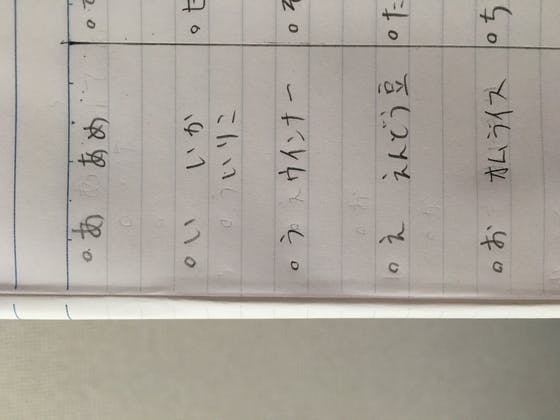 ○あ あめ
○い いか
いりこ
○う ウインナー
○え えんどう豆
○お オムライス
○た
○ち